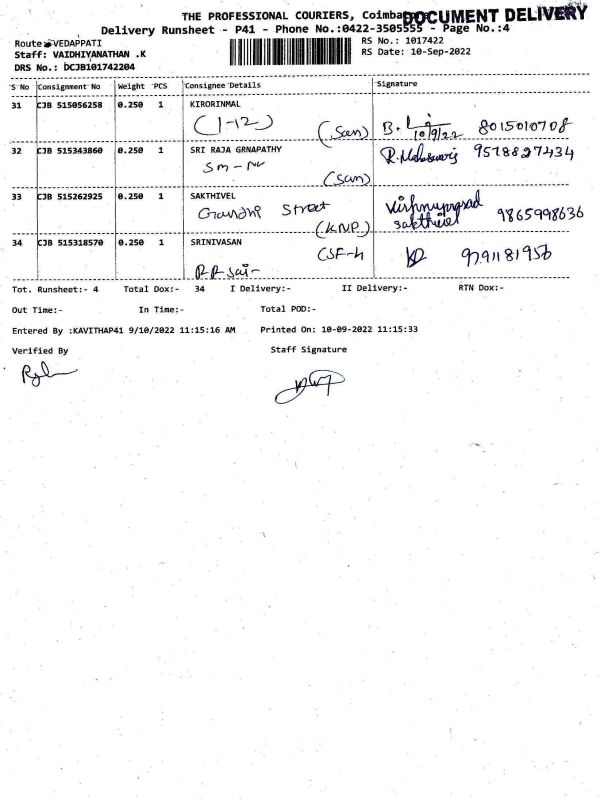 THE PROFESSIONAL COURIERS, Coimba
DOCUMENT DELIVERY
Delivery Runsheet - P41 - Phone No.:0422-3505555 - Page No.:4
Route: VEDAPPATI
RS No.: 1017422
Staff: VAIDHIYANATHAN .K
RS Date: 10-Sep-2022
DRS No.: DCJB101742204
S No Consignment No Weight PCS Consignee Details Signature
31 CJB 515056258 0.250 1 KIRORINMAL
(1-12) (San) B. 10/9/22 8015010708
32 CJB 515343860 0.250 1 SRI RAJA GRNAPATHY
Sm - (San) 9578827434
33 CJB 515262925 0.250 1 SAKTHIVEL
Gandhi Street (KNP) Vishnuprasad sakthivel 9865998636
34 CJB 515318570 0.250 1 SRINIVASAN
RR Sai - CSF-4 9791181956
Tot. Runsheet:- 4 Total Dox:- 34 I Delivery:- II Delivery:- RTN Dox:-
Out Time:- In Time:- Total POD:-
Entered By :KAVITHAP41 9/10/2022 11:15:16 AM Printed On: 10-09-2022 11:15:33
Verified By Staff Signature